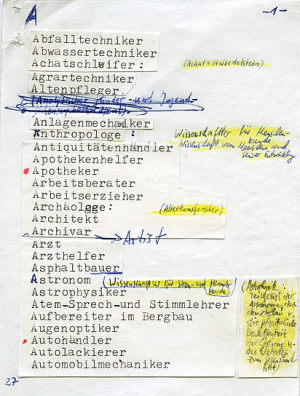 A
-1-
Abfalltechniker
Abwassertechniker
Achatschleifer:
(Achat = Halbedelstein)
Agrartechniker
Altenpfleger
Anlagenmechaniker
Anthropologe:
Wissenschaftler für Menschen-
kunde
Wissenschaft vom Menschen und
seiner Entwicklung
Antiquitätenhändler
Apothekenhelfer
Apotheker
Arbeitsberater
Arbeitserzieher
Archäologe:
(Altertumsforscher)
Architekt
Archivar
Artist
Arzt
Arzthelfer
Asphaltbauer
Astronom
(Wissenschaftler für Stern- und Himmels-
kunde)
Astrophysiker
Atem-Sprech-und Stimmlehrer
Aufbereiter im Bergbau
Augenoptiker
Autohändler
Autolackierer
Automobilmechaniker
(Astrophysik:
Teilgebiet der
27